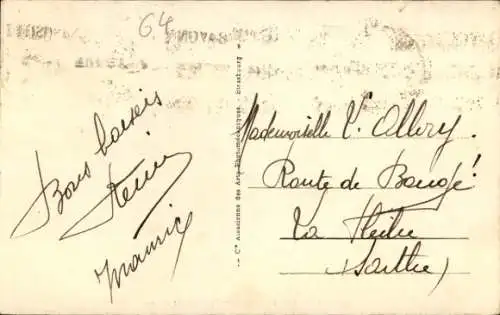 64
Bons baisers
Rémi
Maurice
Cie Alsacienne des Arts Photomécaniques - Strasbourg
Mademoiselle Y. Allory.
Route de Baugé!
La Flèche
(Sarthe)